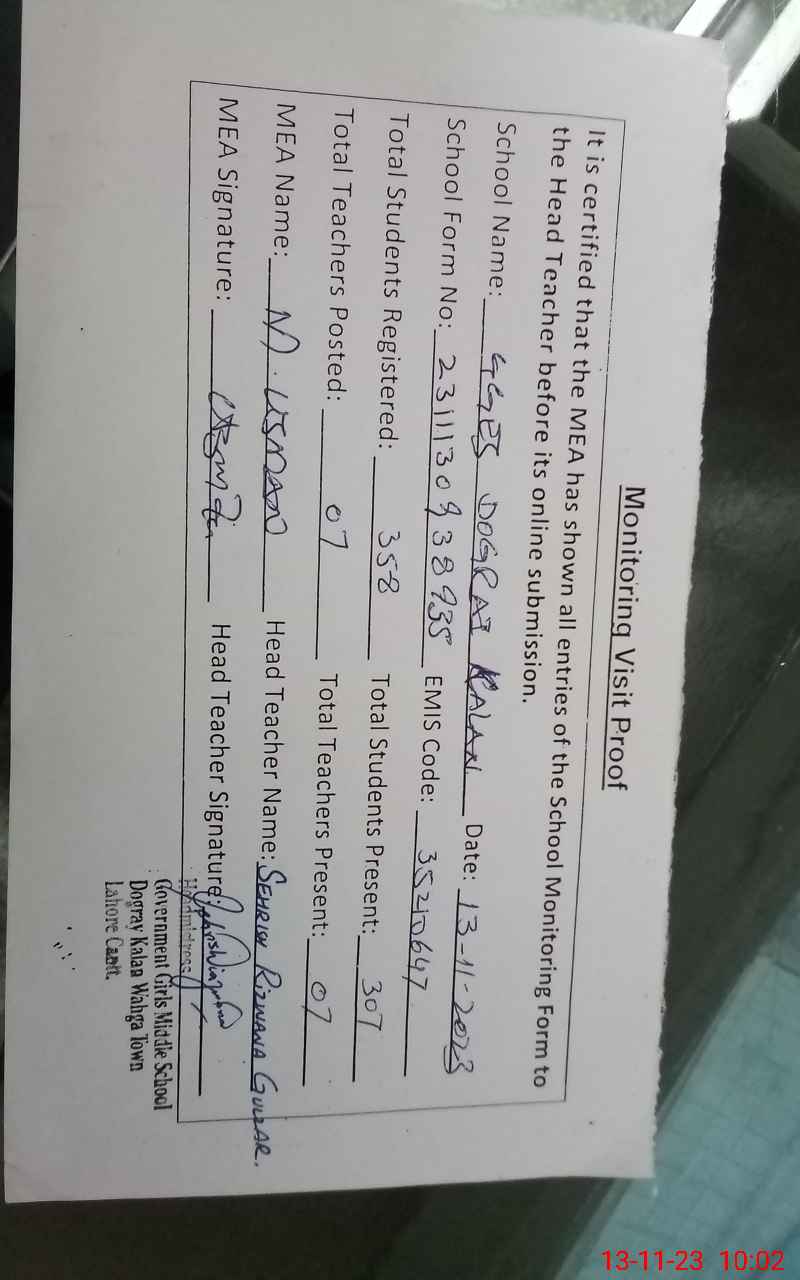 Monitoring Visit Proof
It is certified that the MEA has shown all entries of the School Monitoring Form to
the Head Teacher before its online submission.
School Name: GGES DOGRAI KALAN Date: 13-11-2023
School Form No: 231113093 8935 EMIS Code: 35210647
Total Students Registered: 358 Total Students Present: 307
Total Teachers Posted: 07 Total Teachers Present: 07
MEA Name: M. USMAN Head Teacher Name: SEHRISH RIZWANA GULZAR.
MEA Signature: Head Teacher Signature:
Headmistress
Government Girls Middle School
Dogray Kalan Wahga Town
Lahore Cantt.
13-11-23 10:02